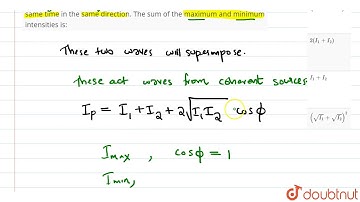 same time in the same direction. The sum of the maximum and minimum
intensities is:
2(I₁ + I₂)
These two waves will superimpose.
These act waves from coherent sources
I₁ + I₂
Iₚ = I₁ + I₂ + 2√I₁I₂ cosϕ
(√I₁ + √I₂)²
Imax , cosϕ = 1
Imin,
doubtnut